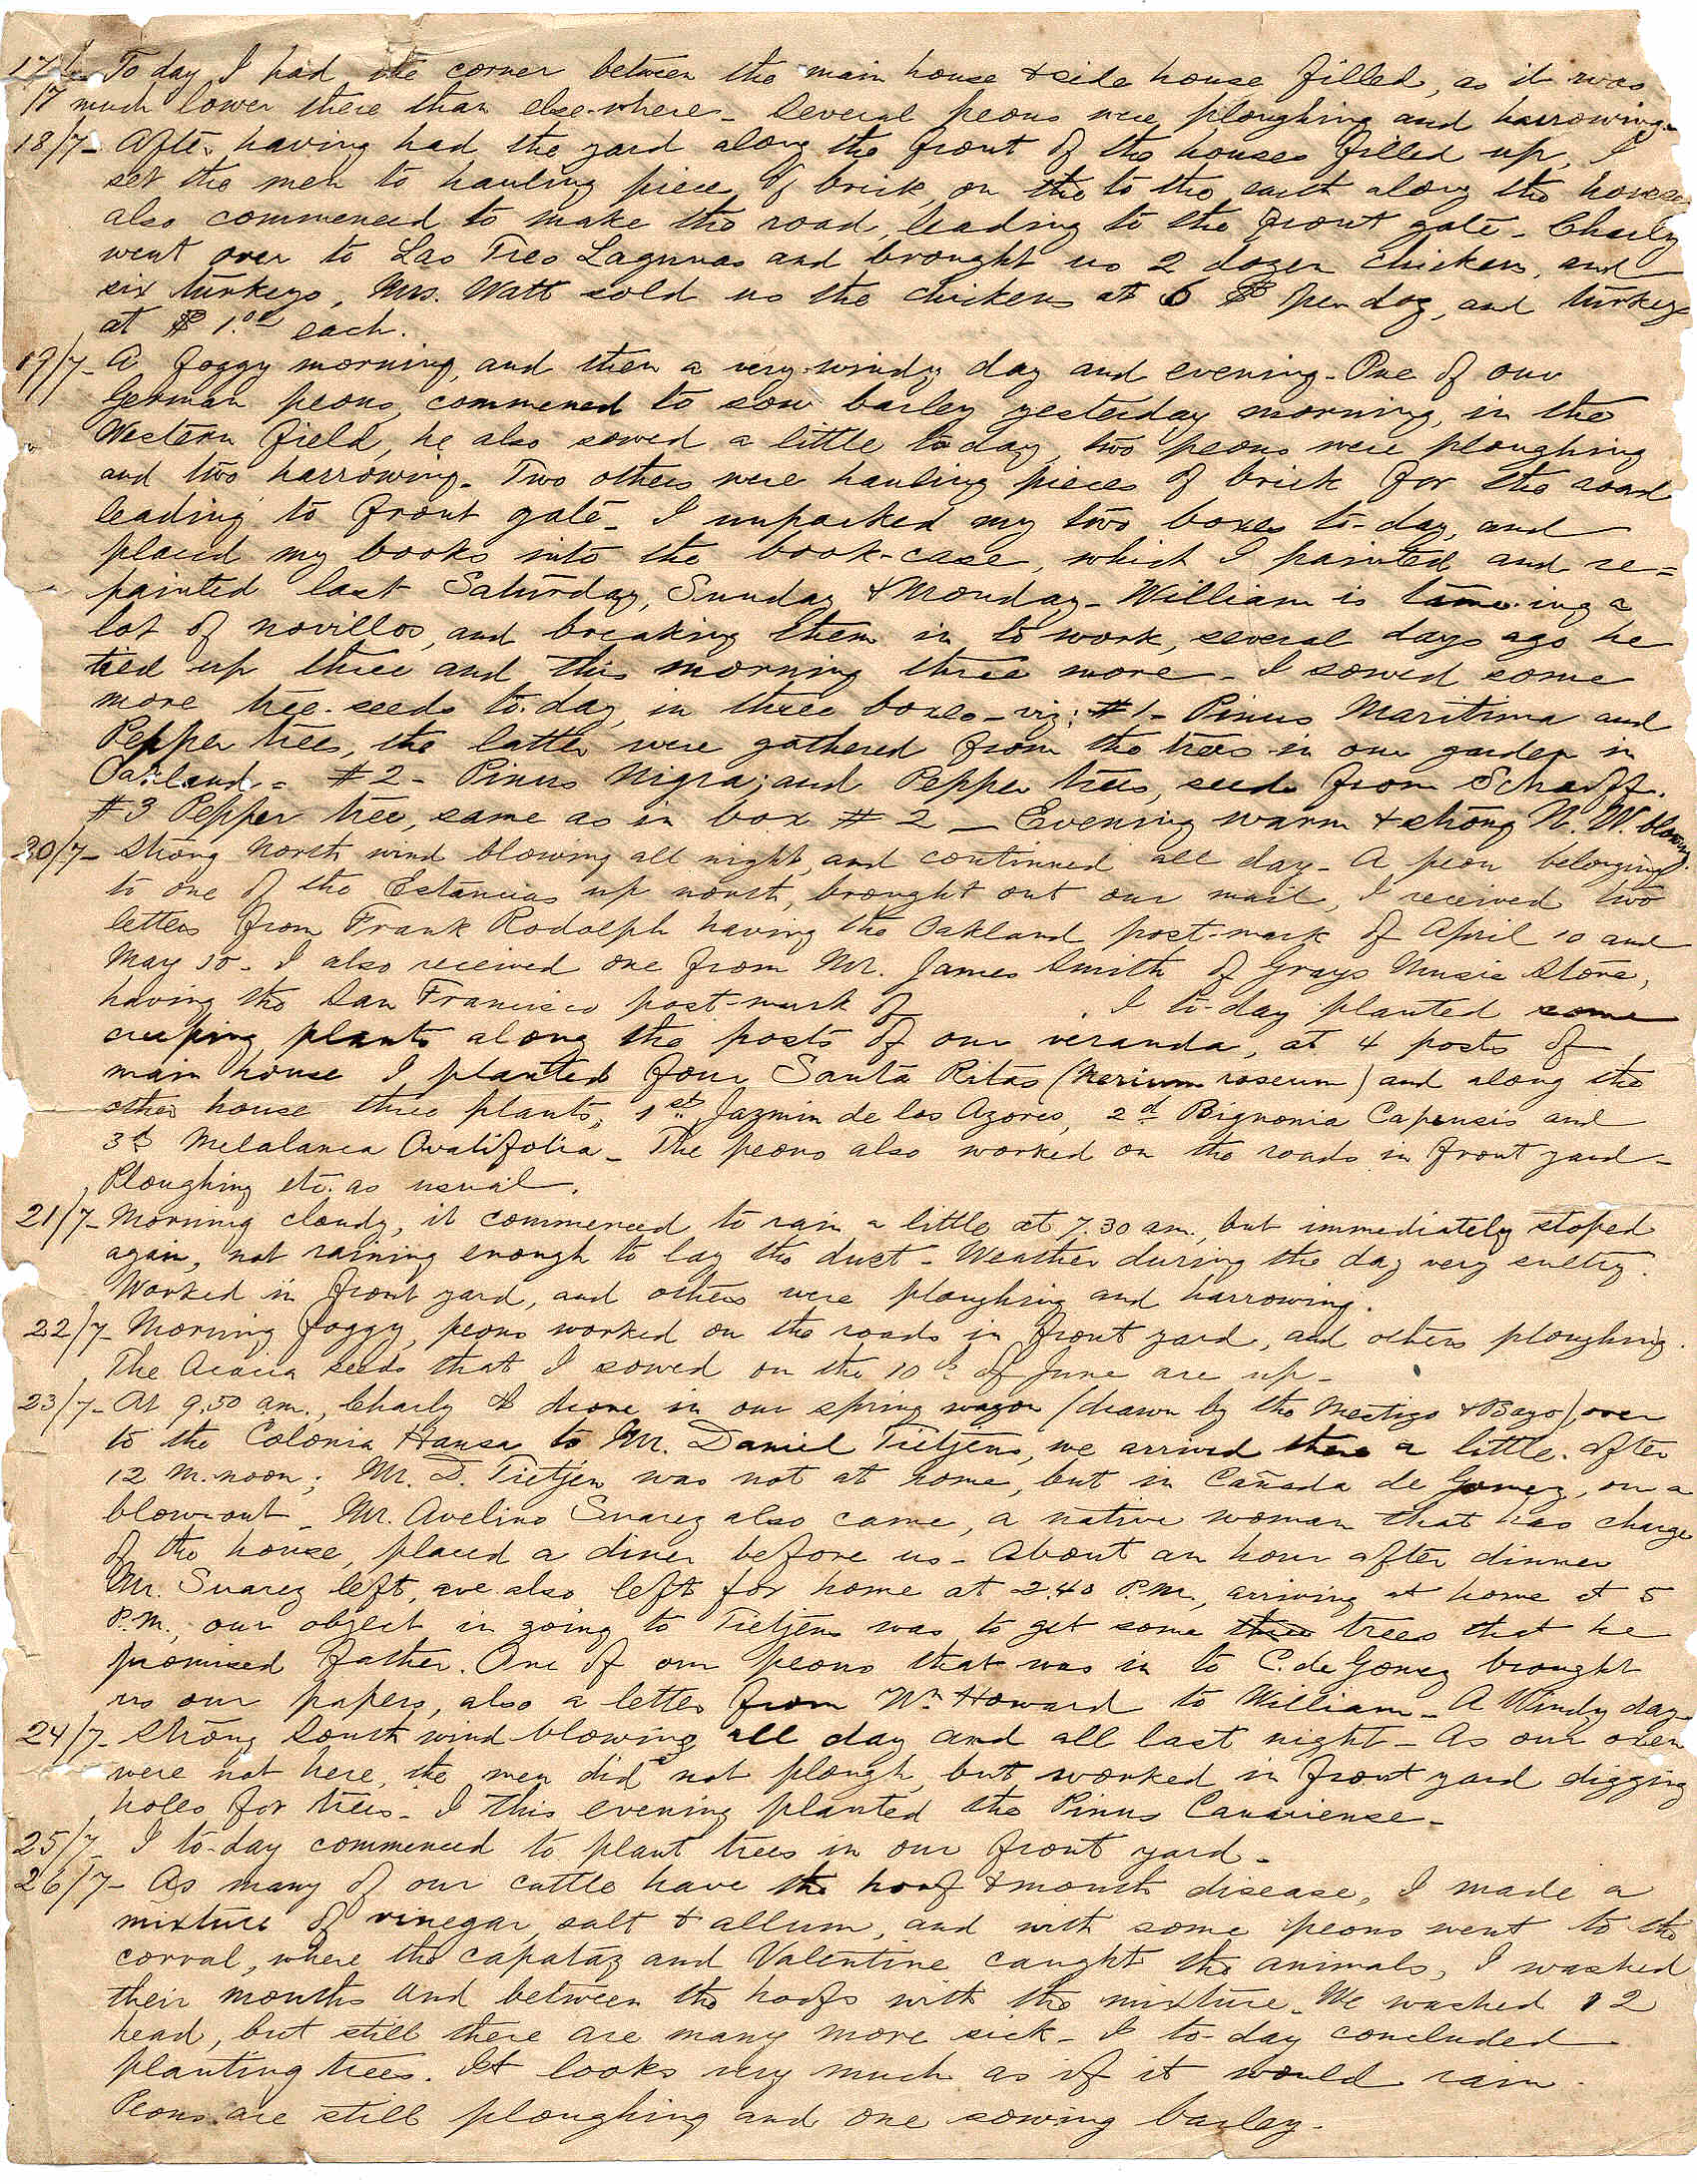 17/7- To day I had the corner between the main house & side house filled, as it was
17 much lower there than else-where- Several peons were ploughing and harrowing-
18/7- After having had the yard along the front of the houses filled up, I
set the men to hauling piece of brick, on the to the earth along the houses
also commenced to make the road, leading to the front gate- Charly
went over to Las Tres Lagunas and brought us 2 dozen chickens, and
six turkeys, Mrs. Watt sold us the chickens at 6 $ per doz, and turkeys
at $ 1.00 each.
19/7- A foggy morning, and then a very windy day and evening- One of our
German peons, commenced to sow barley yesterday morning, in the
Western field, he also sowed a little to day, two peons were ploughing
and two harrowing- Two others were hauling pieces of brick for the road
leading to front gate- I unpacked my two boxes to-day, and
placed my books into the book-case, which I painted and re=
painted last Saturday, Sunday & Monday- William is tameing a
lot of novillos, and breaking them in to work, several days ago he
tied up three and this morning three more- I sowed some
more tree-seeds to-day, in three boxes- viz: #1- Pinus Maritima and
Pepper trees, the latter were gathered from the trees in our garden in
Oakland- #2- Pinus Nigra; and Pepper trees, seeds from Scharff.
#3 Pepper tree, same as in box # 2 - Evening warm & strong N. W. blowing
20/7- Strong North wind blowing all night, and continued all day- A peon belonging
to one of the Estancias up north, brought out our mail, I received two
letters from Frank Rodolph having the Oakland post-mark of April 10 and
May 10- I also received one from Mr. James Smith of Grays Music Store,
having the San Francisco post-mark of . I to-day planted some
creeping plants along the posts of our veranda, at 4 posts of
main house I planted four Santa Ritas (Nerium roseum) and along the
other house three plants, 1st Jazmin de los Azores, 2d Bignonia Capensis and
3d Melalanca Ovatifolia- The peons also worked on the roads in front yard-
Ploughing etc. as usual.
21/7- Morning cloudy, it commenced to rain a little at 7.30 am., but immediately stoped
again, not raining enough to lay the dust- Weather during the day very sultry.
Worked in front yard, and others were ploughing and harrowing.
22/7- Morning foggy, peons worked on the roads in front yard, and others ploughing.
The Acacia seeds that I sowed on the 10th of June are up-
23/7- At 9.50 am., Charly & I drove in our spring wagon (drawn by the Mestizo & Bayo) over
to the Colonia Hansa to Mr. Daniel Tietjens, we arrived there a little after
12 M. noon; Mr. D. Tietjen was not at home, but in Cañada de Gomez, on a
blow-out- Mr. Avelino Suarez also came, a native woman that has charge
of the house, placed a diner before us- About an hour after dinner
Mr. Suarez left, we also left for home at 2.40 P.M., arriving at home at 5
P.M., our object in going to Tietjens was to get some trees that he
promised father. One of our peons that was in to C. de Gomez brought
us our papers, also a letter from Wm Howard to William- A Windy day-
24/7- Strong South wind blowing all day and all last night- As our oxen
were not here, the men did not plough, but worked in front yard digging
holes for trees- I this evening planted the Pinus Canariense-
25/7- I to-day commenced to plant trees in our front yard-
26/7- As many of our cattle have the hoof & mouth disease, I made a
mixture of vinegar, salt & allum, and with some peons went to the
corral, where the capataz and Valentine caught the animals, I washed
their mouths and between the hoofs with the mixture. We washed 12
head, but still there are many more sick- I to-day concluded
planting trees. It looks very much as if it would rain.
Peons are still ploughing and one sowing barley-